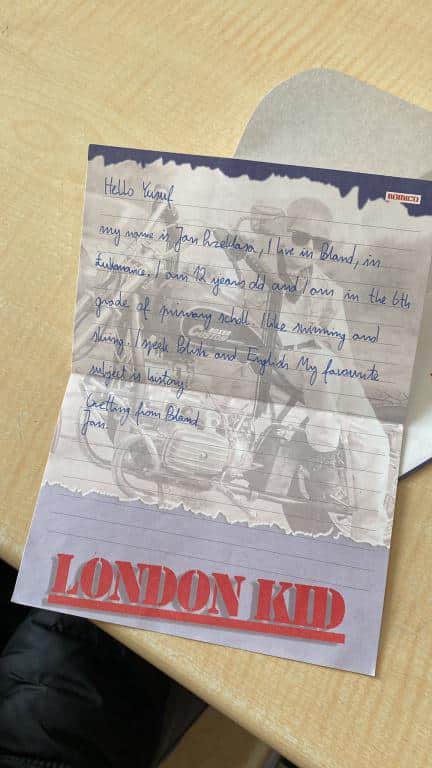 ROMICO
Hello Yusuf
my name is Jan I live in Bland, in
I am 12 years old and I am in the 6th
grade of primary scholl. I like swimming and
skiing. I speak Blish and English My favourite
subject is history.
Gretting from Bland
Jan.
LONDON KID